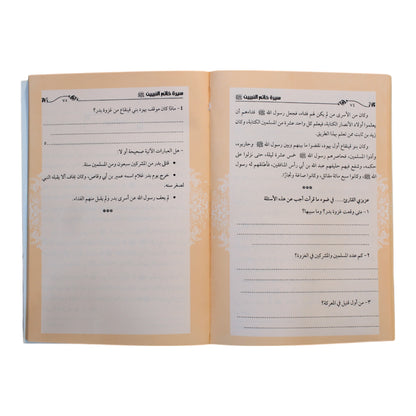 سيرة خاتم النبيين ﷺ
٧٤
وكان من الأسرى من لم يكن لهم فداء، فجعل رسول الله ﷺ فداءهم أن
يعلموا أولاد الأنصار الكتابة، فيعلم كل واحد عشرة من المسلمين الكتابة، وكان
زيد بن ثابت ممن تعلم بهذا الطريق.
وكان بنو قينقاع أول يهود نقضوا ما بينهم وبين رسول الله ﷺ وحاربوه،
فحاصرهم رسول الله ﷺ خمس عشرة ليلة، حتى نزلوا على
حكمه، وشفع فيهم حليفهم عبد الله بن أبي المنافق، فأطلقهم له رسول الله
ﷺ، وكانوا سبع مائة مقاتل، وكانوا صاغة وتجارًا.
***
عزيزي القارئ.... في ضوء ما قرأت أجب عن هذه الأسئلة
١- متى وقعت غزوة بدر؟ وما سببها؟
٢- كم عدد المسلمين والمشركين في الغزوة؟
٣- من أول قتيل في المعركة؟
سيرة خاتم النبيين ﷺ
٧٥
٤- ماذا كان موقف يهود بني قينقاع من غزوة بدر؟
- هل العبارات الآتية صحيحة أو لا:
• قتل بدر من المشركين سبعون ومن المسلمين ستة.
• خرج يوم بدر غلام اسمه عمير بن أبي وقاص، وكان يخاف ألا يقبله النبي
لصغر سنه.
• لم يعف رسول الله عن أسرى بدر ولم يقبل منهم الفداء.
***